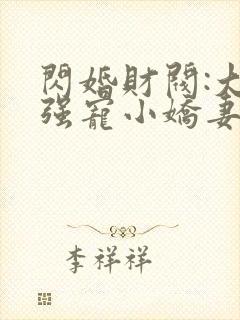 閃婚財閥:大
强寵小嬌妻
李祥祥